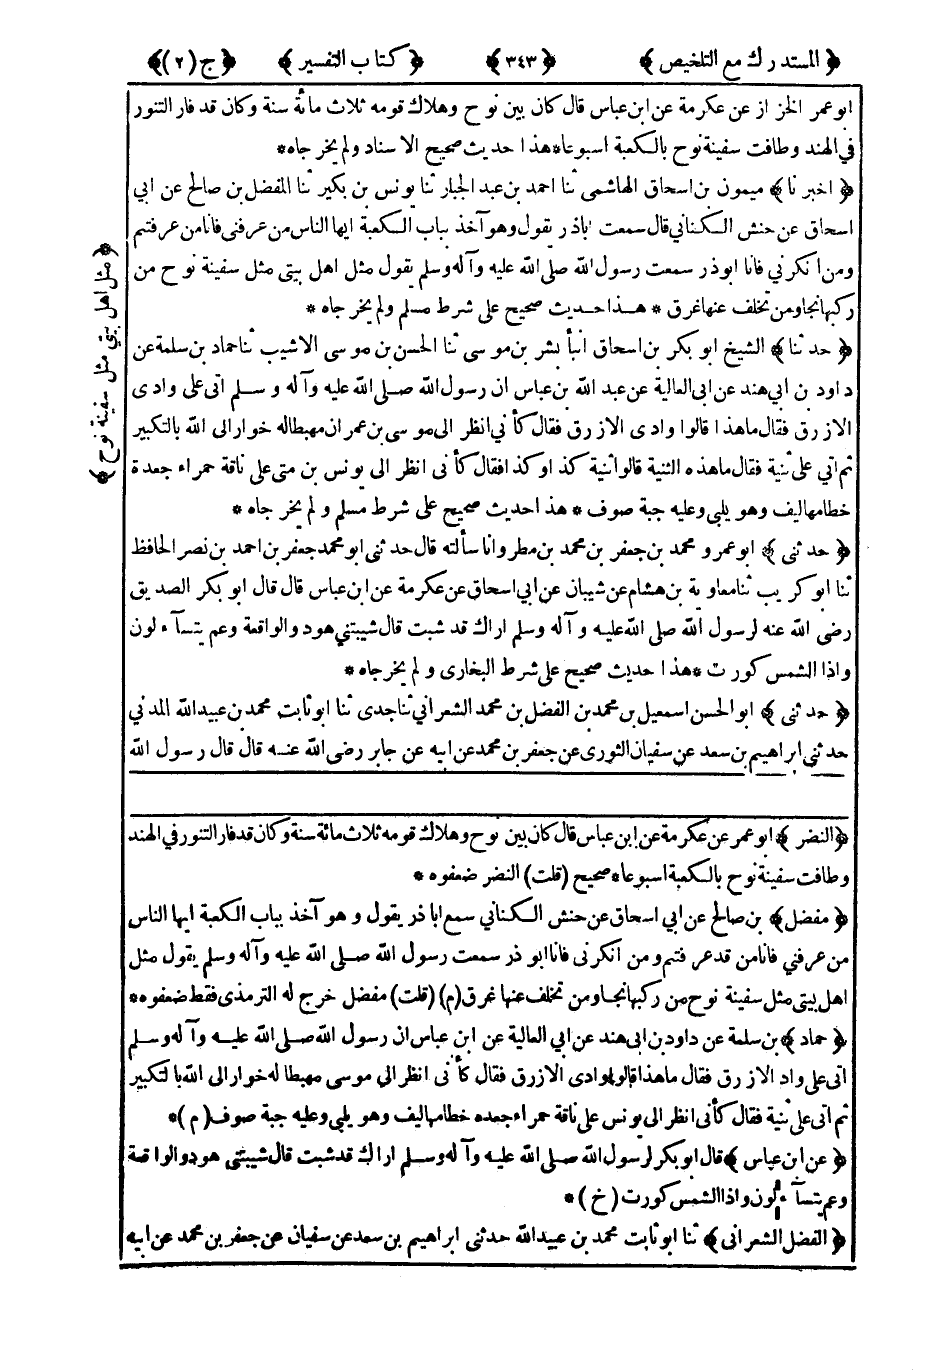 ﴿ المستدرك مع التلخيص ﴾ ﴿ ٣٤٣ ﴾ ﴿ كتاب التفسير ﴾ ﴿ ج (٢) ﴾
ابو عمر الخزاز عن عكرمة عن ابن عباس قال كان بين نوح وهلاك قومه ثلاث مائة سنة وكان قد فار التنور
فى الهند وطافت سفينة نوح بالكعبة اسبوعا * هذا حديث صحيح الاسناد ولم يخرجاه *
﴿ اخبرنا ﴾ ميمون بن اسحاق الهاشمى ثنا احمد بن عبد الجبار ثنا يونس بن بكير ثنا المفضل بن صالح عن ابى
اسحاق عن حنش الكنانى قال سمعت اباذر يقول وهو آخذ بباب الكعبة ايها الناس من عرفنى فانا من عرفتم
ومن انكرنى فانا ابوذر سمعت رسول الله صلى الله عليه وآله وسلم يقول مثل اهل بيتى مثل سفينة نوح من
ركبها نجا ومن تخلف عنها غرق * هذا حديث صحيح على شرط مسلم ولم يخرجاه *
﴿ حدثنا ﴾ الشيخ ابو بكر بن اسحاق انبأ بشر بن موسى ثنا الحسن بن موسى الاشيب ثنا حماد بن سلمة عن
داود بن ابى هند عن ابى العالية عن عبد الله بن عباس ان رسول الله صلى الله عليه وآله وسلم اتى على وادى
الازرق فقال ماهذا قالوا وادى الازرق فقال كأنى انظر الى موسى بن عمران مهبطا له خوار الى الله بالتكبير
ثم اتى على ثنية فقال ماهذه الثنية قالوا ثنية كذا وكذا فقال كأنى انظر الى يونس بن متى على ناقة حمراء جعدة
خطامها ليف وهو يلبى وعليه جبة صوف * هذا حديث صحيح على شرط مسلم ولم يخرجاه *
﴿ حدثنى ﴾ ابو عمرو محمد بن جعفر بن محمد بن مطر وانا سألته قال حدثنى ابو محمد جعفر بن احمد بن نصر الحافظ
ثنا ابو كريب ثنا معاوية بن هشام عن شيبان عن ابى اسحاق عن عكرمة عن ابن عباس قال قال ابو بكر الصديق
رضى الله عنه لرسول الله صلى الله عليه وآله وسلم اراك قد شبت قال شيبتنى هود والواقعة وعم يتسآءلون
واذا الشمس كورت * هذا حديث صحيح على شرط البخارى ولم يخرجاه *
﴿ حدثنى ﴾ ابو الحسن اسمعيل بن محمد بن الفضل بن محمد الشعرانى ثنا جدى ثنا ابو ثابت محمد بن عبيد الله المدنى
حدثنى ابراهيم بن سعد عن سفيان الثورى عن جعفر بن محمد عن ابيه عن جابر رضى الله عنه قال قال رسول الله
﴿ مثل اهل بيتى مثل سفينة نوح ﴾
﴿ النضر ﴾ ابو عمر عن عكرمة عن ابن عباس قال كان بين نوح وهلاك قومه ثلاث مائة سنة وكان قد فار التنور فى الهند
وطافت سفينة نوح بالكعبة اسبوعا * صحيح (قلت) النضر ضعفوه *
﴿ مفضل ﴾ بن صالح عن ابى اسحاق عن حنش الكنانى سمع اباذر يقول وهو آخذ بباب الكعبة ايها الناس
من عرفنى فانا من قد عرفتم ومن انكرنى فانا ابوذر سمعت رسول الله صلى الله عليه وآله وسلم يقول مثل
اهل بيتى مثل سفينة نوح من ركبها نجا ومن تخلف عنها غرق (م) (قلت) مفضل خرج له الترمذى فقط ضعفوه *
﴿ حماد ﴾ بن سلمة عن داود بن ابى هند عن ابى العالية عن ابن عباس ان رسول الله صلى الله عليه وآله وسلم
اتى على واد الازرق فقال ماهذا قالوا وادى الازرق فقال كأنى انظر الى موسى مهبطا له خوار الى الله بالتكبير
ثم اتى على ثنية فقال كأنى انظر الى يونس على ناقة حمراء جعده خطامها ليف وهو يلبى وعليه جبة صوف (م) *
﴿ عن ابن عباس ﴾ قال ابو بكر لرسول الله صلى الله عليه وآله وسلم اراك قد شبت قال شيبتنى هود والواقعة
وعم يتسآءلون واذا الشمس كورت (خ) *
﴿ الفضل الشعرانى ﴾ ثنا ابو ثابت محمد بن عبيد الله حدثنى ابراهيم بن سعد عن سفيان عن جعفر بن محمد عن ابيه